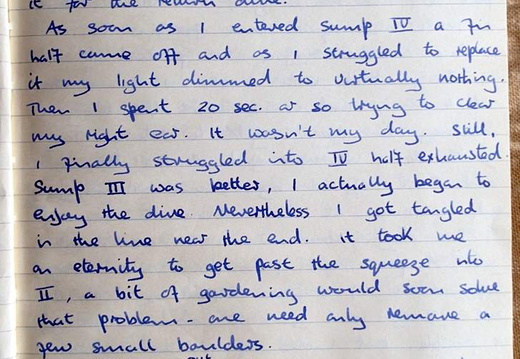 it for the return dive.
As soon as I entered sump IV a fin
half came off and as I struggled to replace
it my light dimmed to virtually nothing.
Then I spent 20 sec. or so trying to clear
my right ear. It wasn't my day. Still,
I finally struggled into IV half exhausted.
Sump III was better, I actually began to
enjoy the dive. Nevertheless I got tangled
in the line near the end. It took me
an eternity to get past the squeeze into
II, a bit of gardening would soon solve
that problem - one need only remove a
few small boulders.